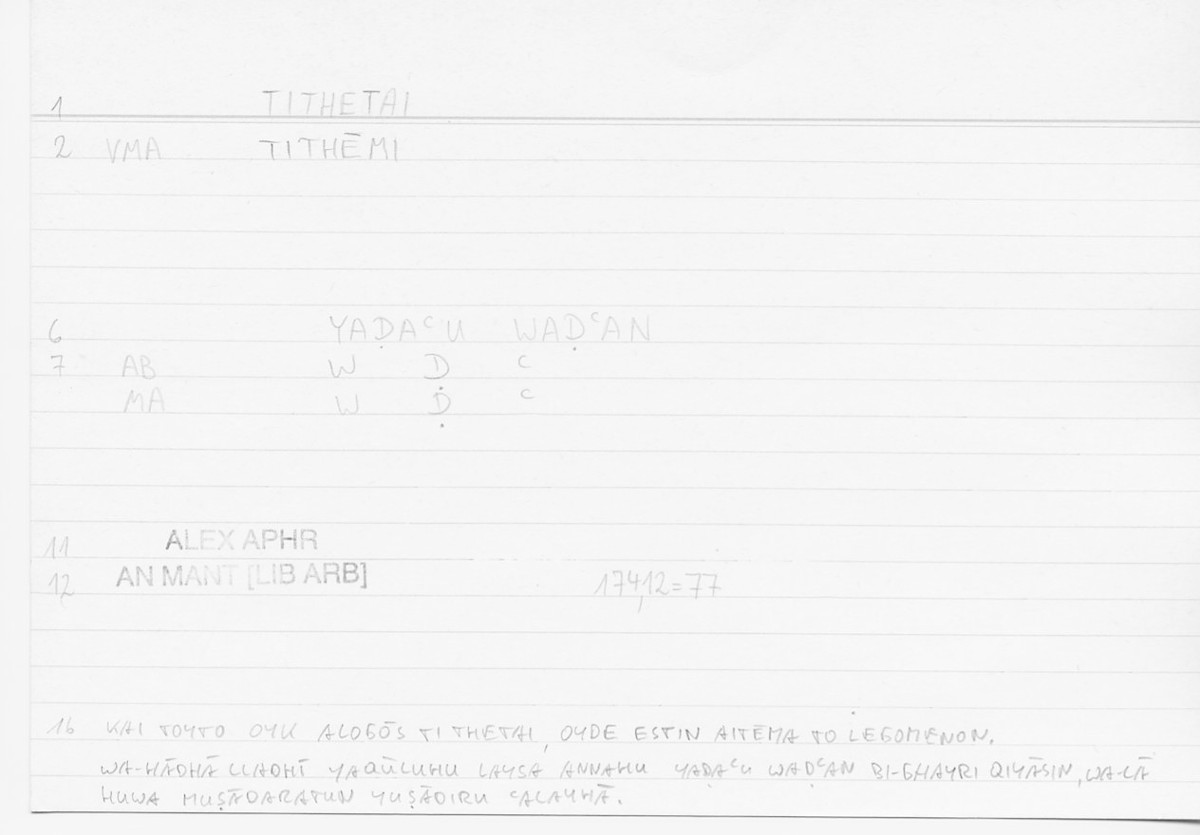 1 TITHETAI
2 VMA TITHĒMI
6 YAḌAᶜU WAḌᶜAN
7 AB W Ḍ ᶜ
MA W Ḍ ᶜ
11 ALEX APHR
12 AN MANT [LIB ARB] 174,12=77
16 KAI TOYTO OYK ALOGŌS TITHETAI, OYDE ESTIN AITĒMA TO LEGOMENON.
WA-HĀDHĀ LLADHĪ YAQŪLUHU LAYSA ANNAHU YAḌAᶜU WAḌᶜAN BI-GHAYRI QIYĀSIN, WA-LĀ
HUWA MUṢĀDARATUN YUṢĀDIRU ᶜALAYHĀ.